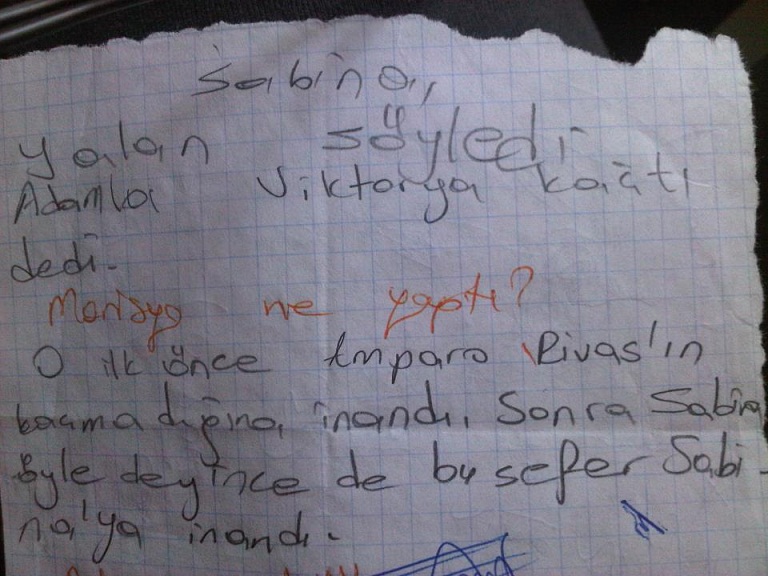 Sabina,
yalan söyledi
Adamla Viktorya kaçtı
dedi.
Marisyo ne yaptı?
O ilk önce Amparo Rivas'ın
kaçmadığına inandı. Sonra Sabina
öyle deyince de bu sefer Sabi-
na'ya inandı.